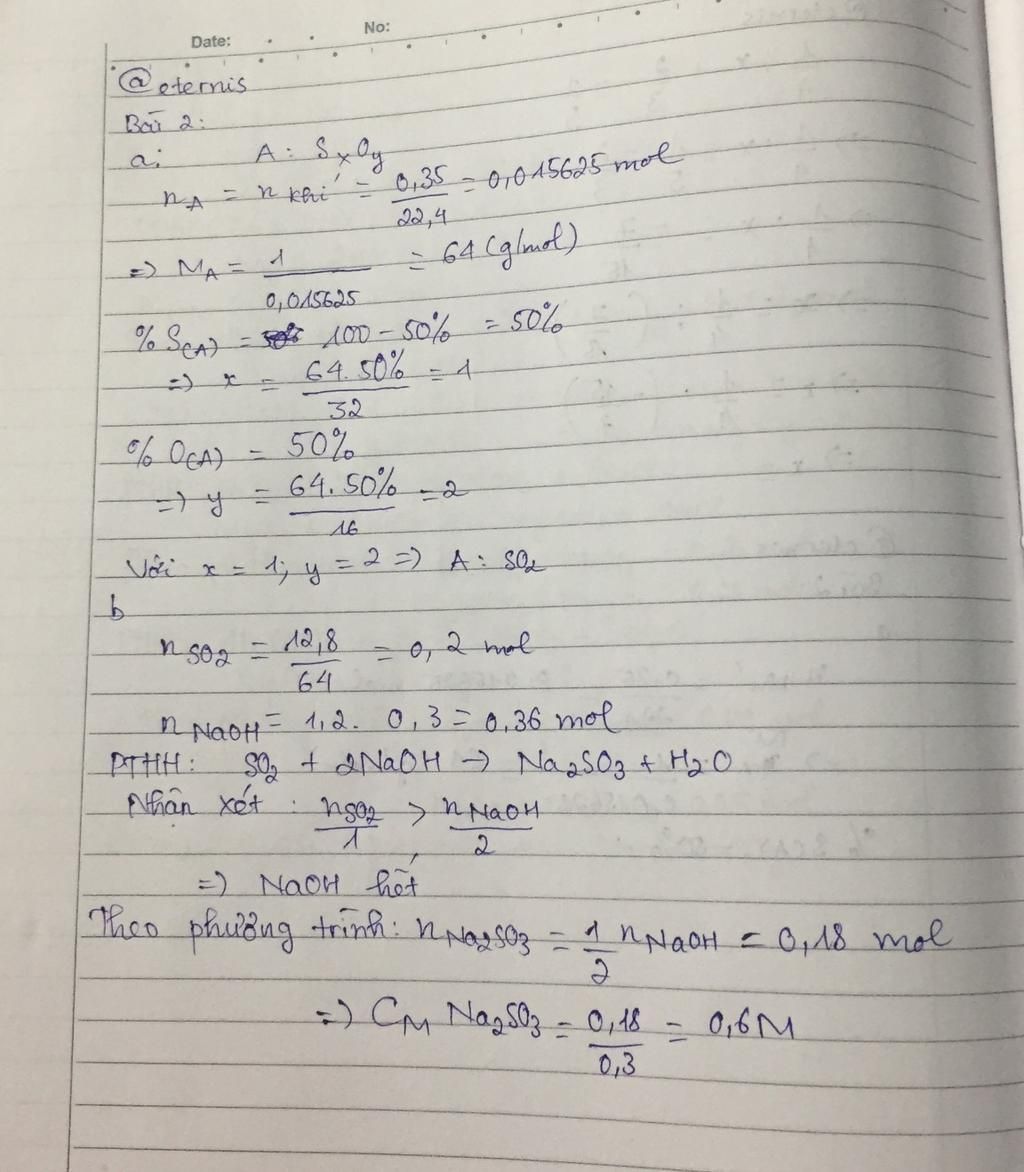 Date:
No:
@eternis
Bài 2:
a; A: SxOy
nA = n khí = 0,35/22,4 = 0,015625 mol
=> MA = 1/0,015625 = 64 (g/mol)
% S(A) = 100 - 50% = 50%
=> x = 64.50%/32 = 1
% O(A) = 50%
=> y = 64.50%/16 = 2
Với x = 1; y = 2 => A: SO2
b
n SO2 = 12,8/64 = 0,2 mol
n NaOH = 1,2. 0,3 = 0,36 mol
PTHH: SO2 + 2NaOH -> Na2SO3 + H2O
Nhận xét: nSO2/1 > nNaOH/2
=> NaOH hết
Theo phương trình: nNa2SO3 = 1/2 nNaOH = 0,18 mol
=> CM Na2SO3 = 0,18/0,3 = 0,6M